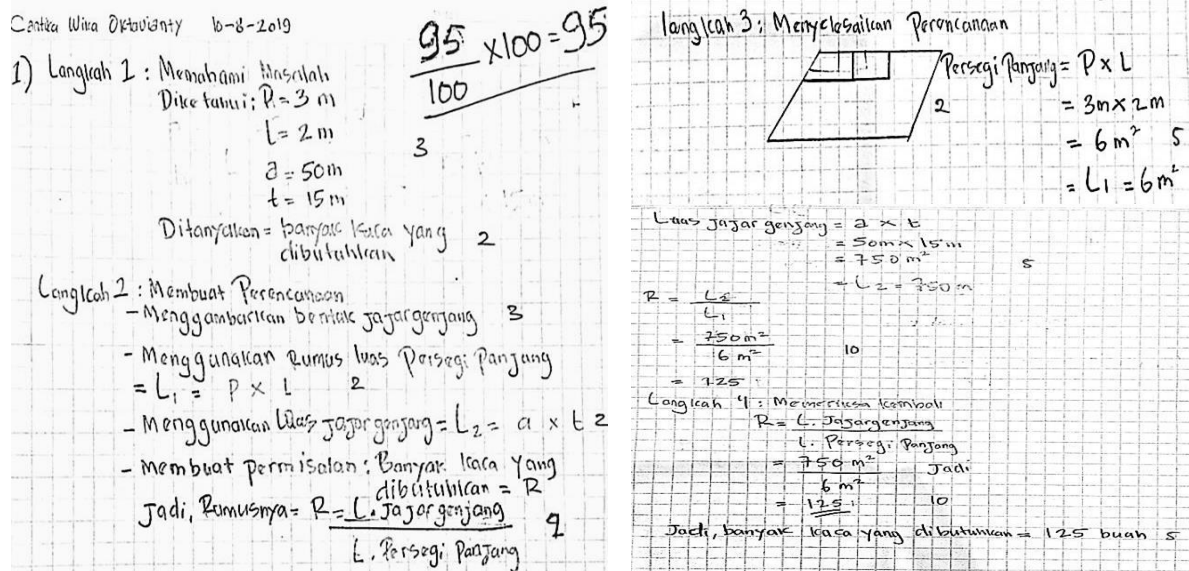 Cantika Wira Oktavianty 10-8-2019
95/100 x 100 = 95
1) Langkah 1 : Memahami Masalah
Diketahui : P = 3 m
l = 2 m
3
a = 50 m
t = 15 m
Ditanyakan = banyak kaca yang 2
dibutuhkan
Langkah 2 : Membuat Perencanaan
- Menggambarkan bentuk jajargenjang 3
- Menggunakan Rumus luas Persegi Panjang
= L₁ = P x L 2
- Menggunakan Luas jajargenjang = L₂ = a x t 2
- Membuat permisalan : Banyak kaca yang
dibutuhkan = R
Jadi, Rumusnya = R = L. Jajargenjang
L. Persegi Panjang
langkah 3 : Menyelesaikan Perencanaan
Persegi Panjang = P x L
2 = 3m x 2m
= 6 m² 5
= L₁ = 6 m²
Luas jajargenjang = a x t
= 50m x 15m
= 750 m² 5
= L₂ = 750 m
R = L₂
L₁
= 750 m²
6 m² 10
= 125
Langkah 4 : Memeriksa kembali
R = L. Jajargenjang
L. Persegi Panjang
= 750 m² Jadi
6 m²
= 125 10
Jadi, banyak kaca yang dibutuhkan = 125 buah 5